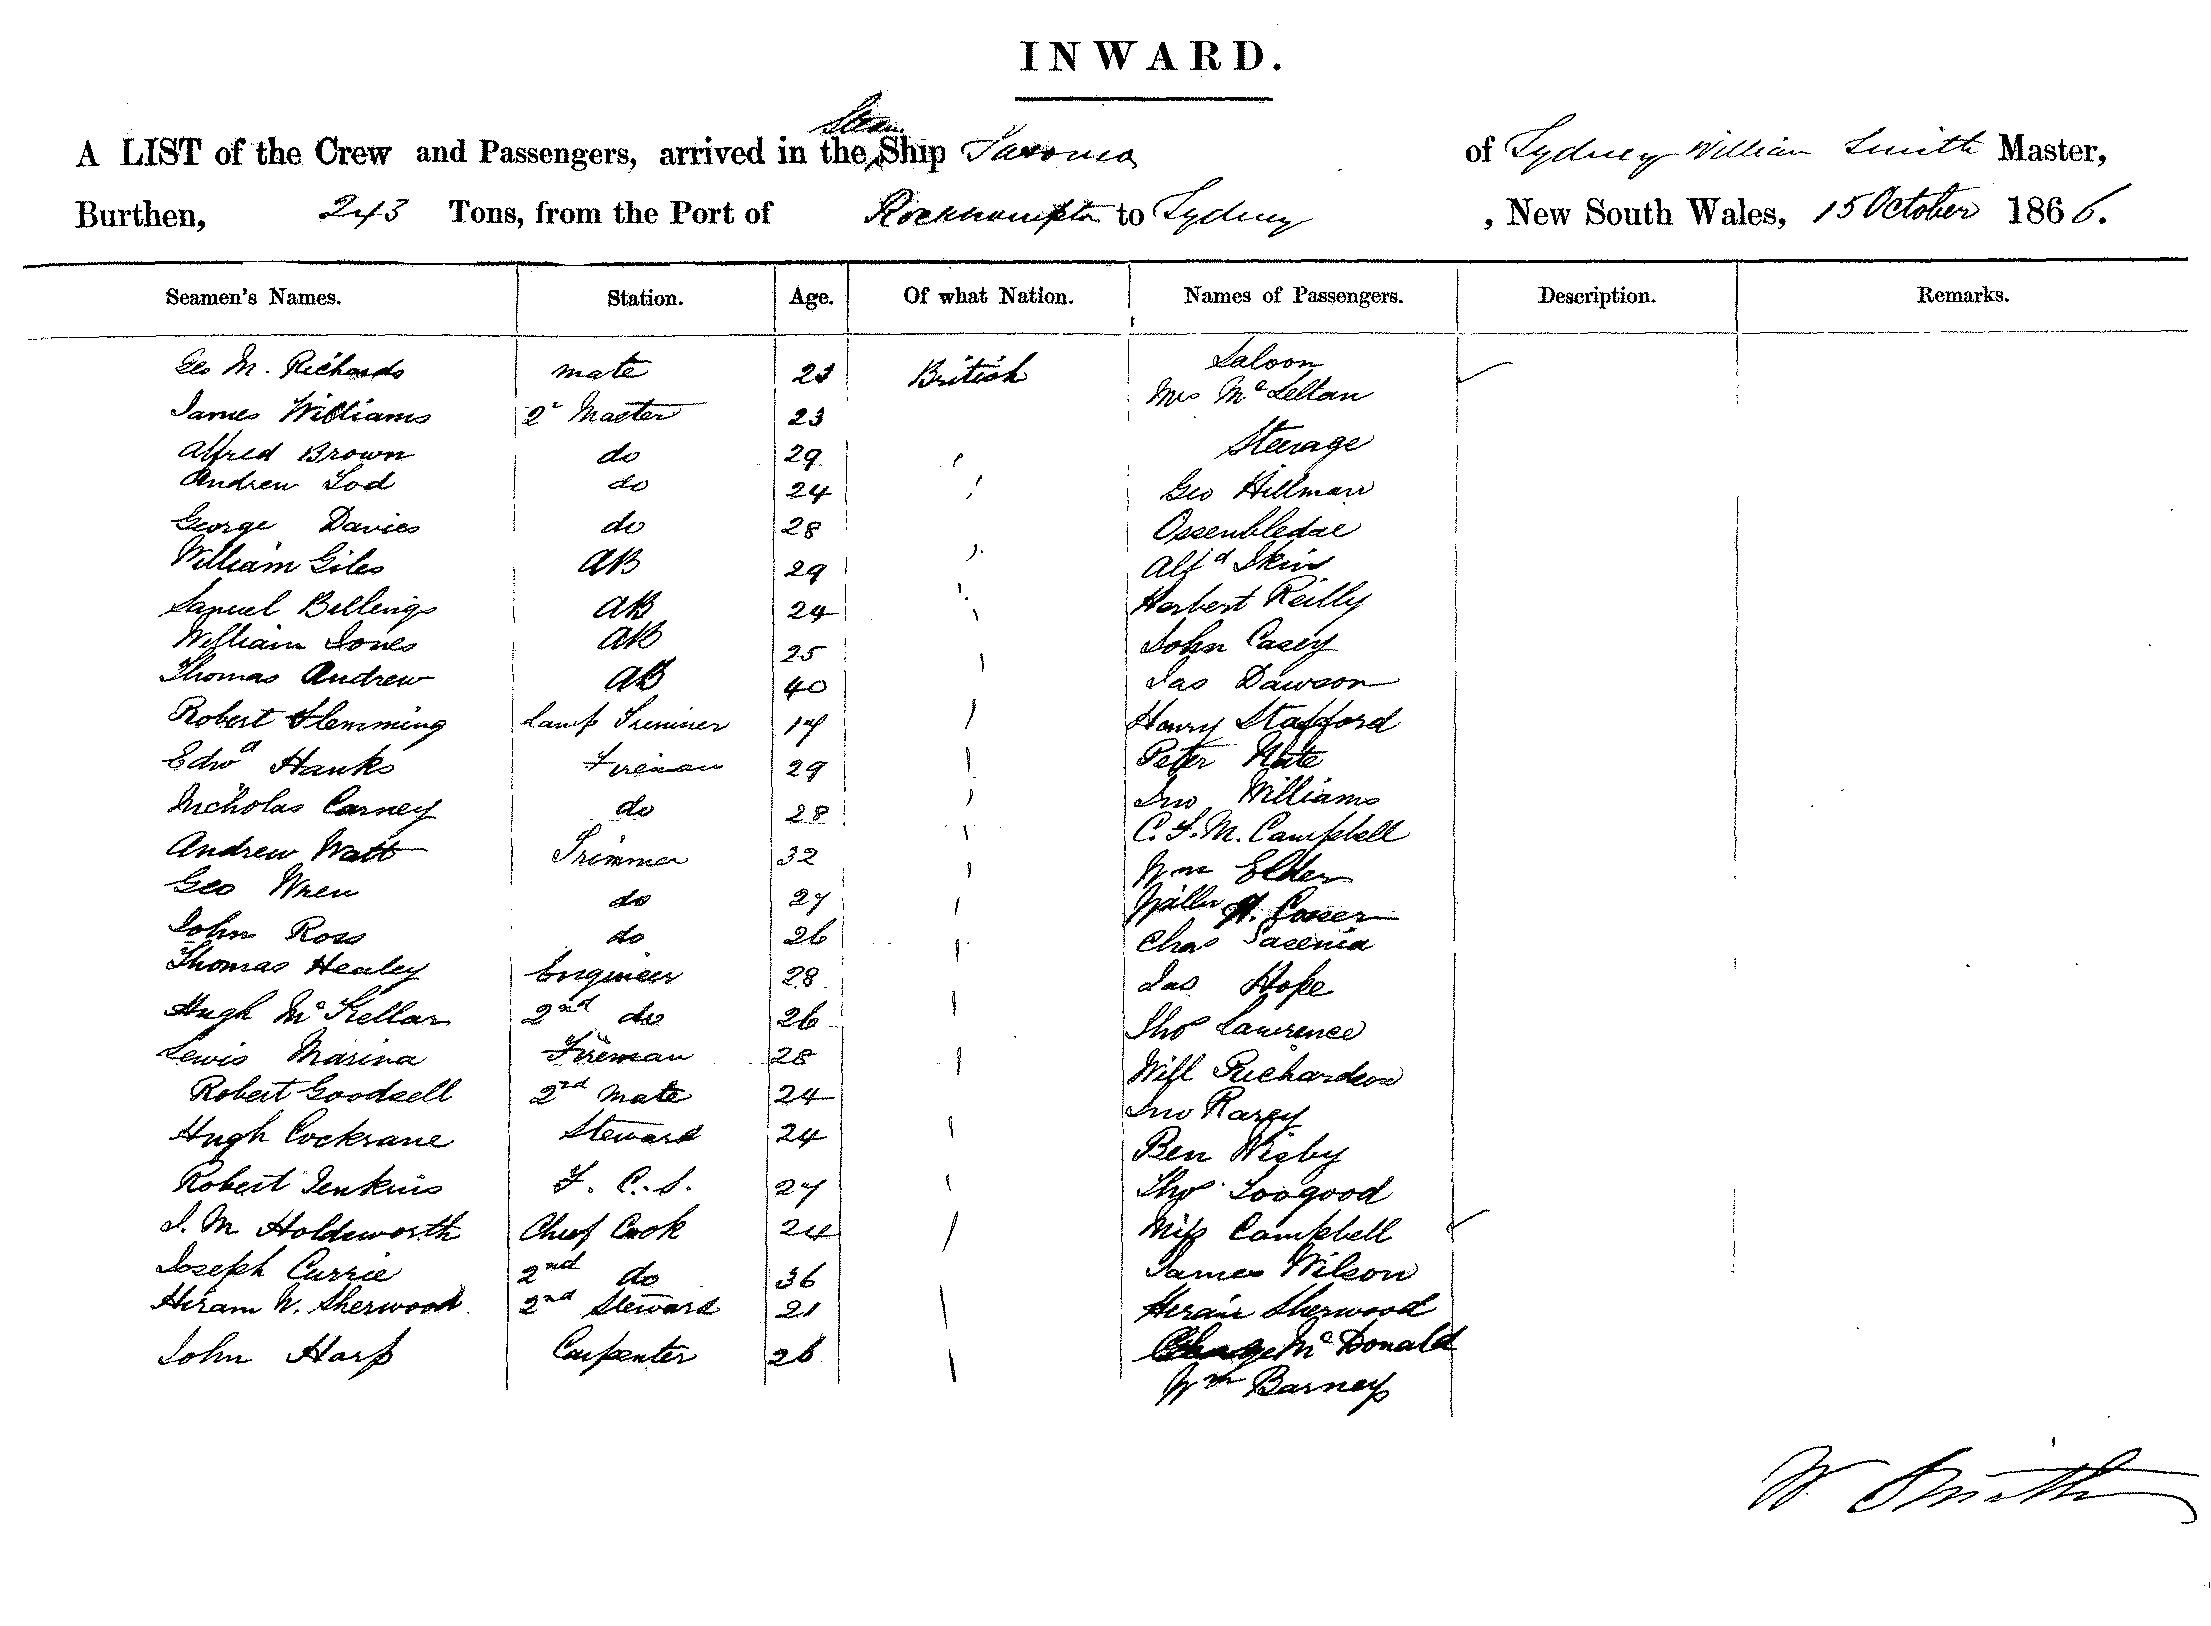 INWARD.
A LIST of the Crew and Passengers, arrived in the Steam Ship of Sydney William Smith Master,
Burthen, 243 Tons, from the Port of Rockhampton to Sydney , New South Wales, 15 October 1866.
Seamen's Names. Station. Age. Of what Nation. Names of Passengers. Description. Remarks.
Geo M. Richards mate 23 British Saloon
Mrs McLellan
James Williams 2d Master 23
Steerage
Alfred Brown do 29
Andrew do 24 Geo Hillman
George Davies do 28
William Giles AB 29 Alfd
Samuel Billings AB 24 Herbert Reilly
William Jones AB 25 John Casey
Thomas Andrew AB 40 Jas Dawson
Robert Flemming Lamp Trimmer 17 Henry Stafford
Edwd Hanks Fireman 29 Peter
Nicholas Carney do 28 Jno Williams
C. F. M. Campbell
Andrew Watt Trimmer 32 Wm Elder
Geo Wren do 27
John Ross do 26 Chas
Thomas Healey Engineer 28 Jas Hope
Hugh McKellar 2nd do 26 Thos Lawrence
Lewis Marina Fireman 28 Will Richardson
Robert Goodsell 2nd Mate 24 Jno
Hugh Cockrane Steward 24 Ben Wigby
Robert Jenkins F. C. S. 27 Thos Toogood
J. M Holdsworth Chief Cook 24 Miss Campbell
Joseph Currie 2nd do 36 James Wilson
Hiram W. Sherwood 2nd Steward 21 Hiram Sherwood
John Harp Carpenter 26 McDonald
Wm Barney
W Smith